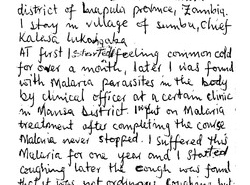 district of Luapula province, Zambia.
I stay in village of Sumbu, Chief
Kalasa Lukangaba
AT first I started feeling common cold
for over a month, later I was found
with Malaria parasites in the body
by clinical officer at a certain clinic
in Mansa district. I put on Malaria
treatment after completing the course
Malaria never stopped. I suffered this
Malaria for one year and I started
coughing later the cough was found
that it was not ordinary coughing but